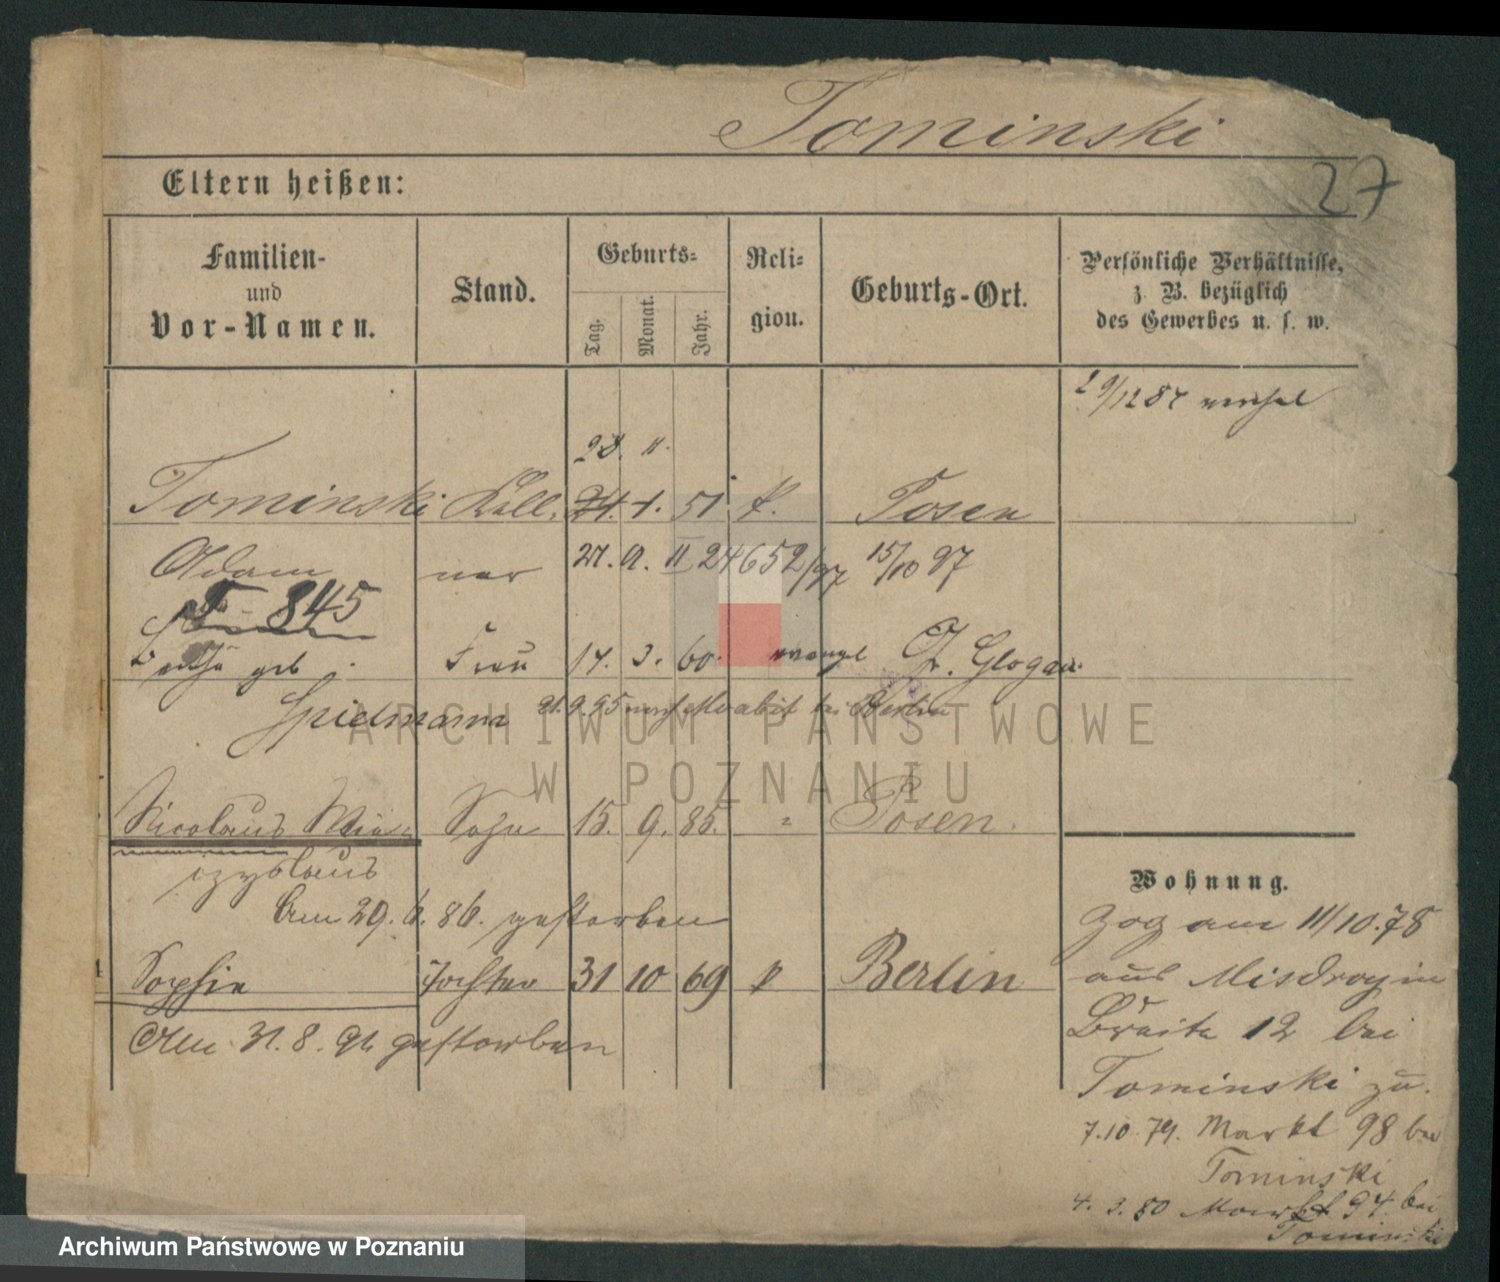 Tominski
27
Eltern heißen:
Familien-
und
Vor-Namen.
Stand.
Geburts-
Tag.
Monat.
Jahr.
Reli-
gion.
Geburts-Ort.
Persönliche Verhältnisse,
z. B. bezüglich
des Gewerbes u. s. w.
28. 11.
Tominski Kell. 24. 1. 51 k. Posen
Adam ner 15/10 97
T-845
geb. Frau 14. 3. 60. evangel Gr. Glogau.
Spielmann 9.95 Moabit bei Berlin
Nicolaus Mie- Sohn 15. 9. 85. " Posen.
czyslaus
Am 29. 6. 86. gestorben
Sophie Tochter 31 10 69 k Berlin
Am 31. 8. gestorben
Wohnung.
Zog am 11/10.78
aus Misdroy in
Breite 12 bei
Tominski zu.
7.10.79. Markt 98 bei
Tominski
4. 3. 80 Markt 94. bei
Tominski
ARCHIWUM PAŃSTWOWE
W POZNANIU
Archiwum Państwowe w Poznaniu